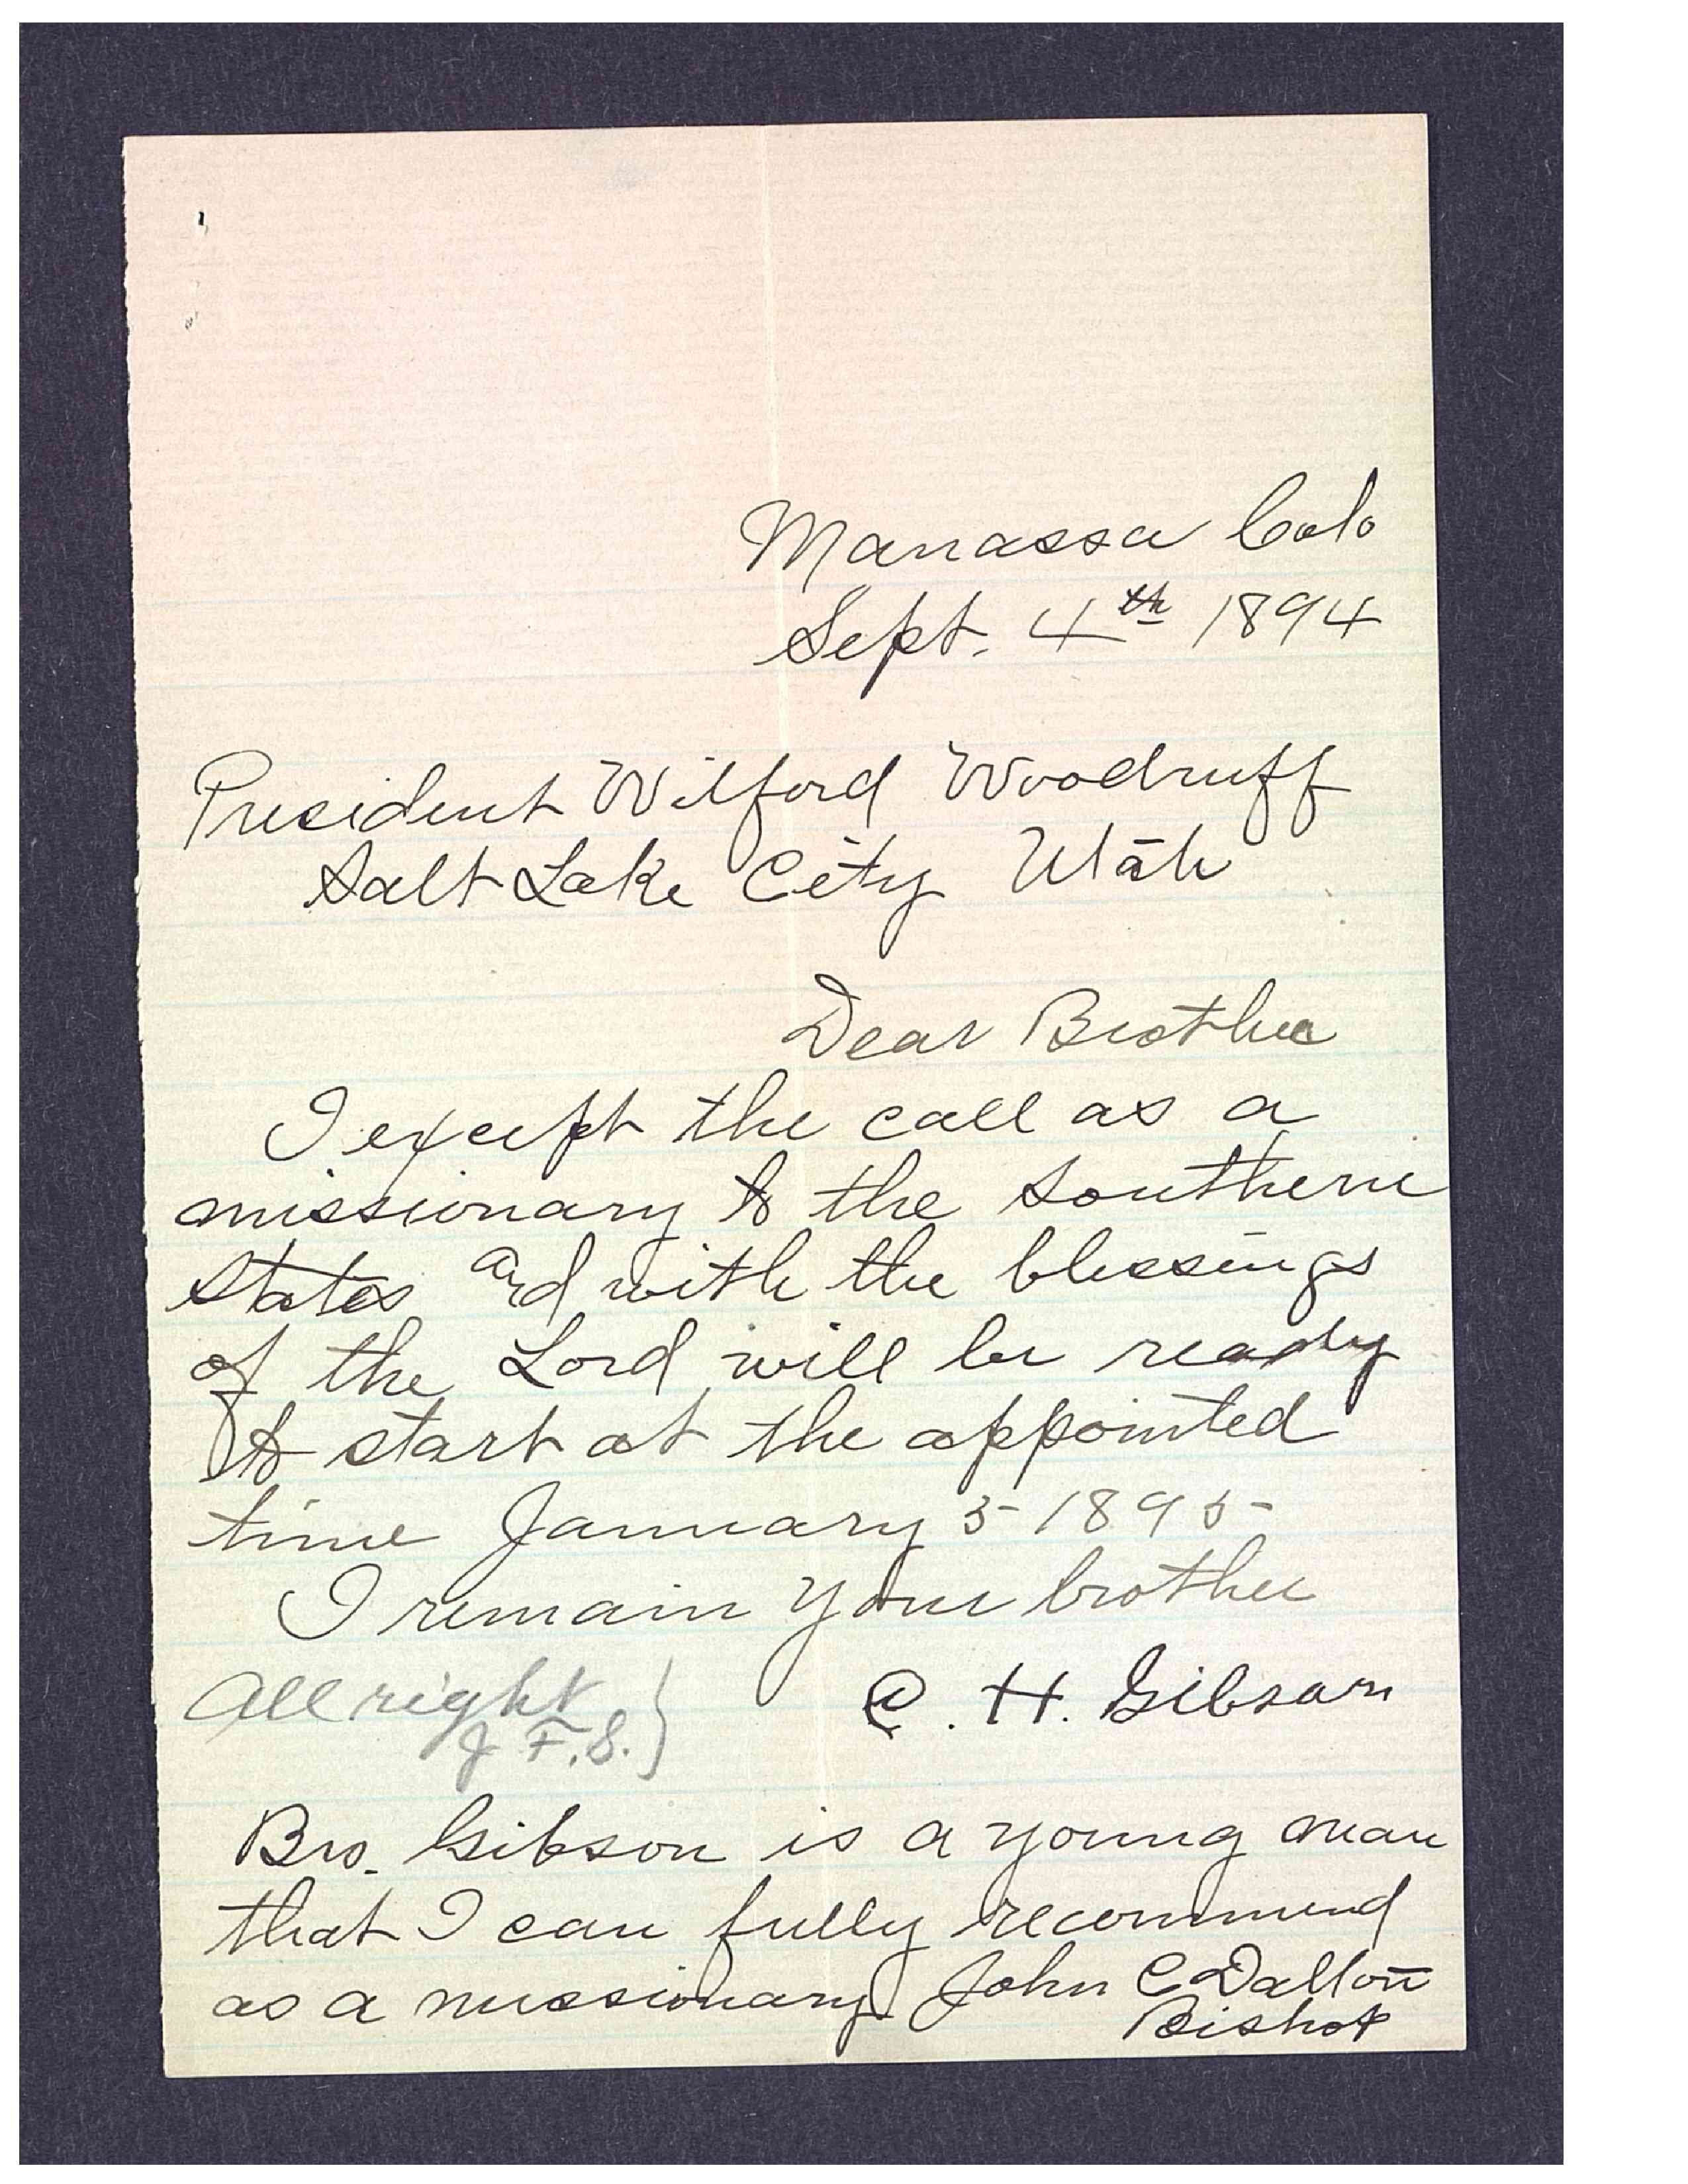 Manassa Colo
Sept. 4th 1894
President Wilford Woodruff
Salt Lake City Utah
Dear Brother
I except the call as a
missionary to the southern
states and with the blessings
of the Lord will be ready
to start at the appointed
time January 5 1895
I remain your brother
All right
J F. S.}
C. H. Gibson
Bro. Gibson is a young man
that I can fully recommend
as a missionary John C Dalton
Bishop